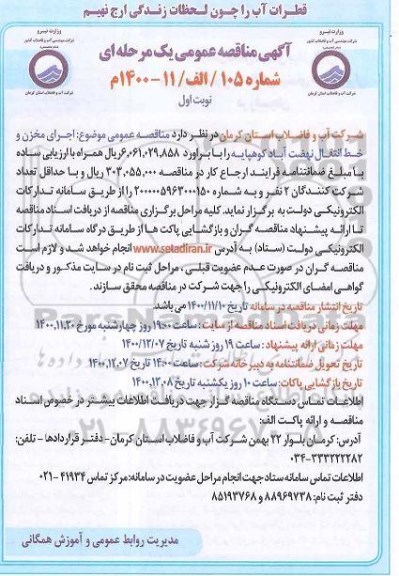 قطرات آب را چون لحظات زندگی ارج نهیم
وزارت نیرو
وزارت نیرو
آگهی مناقصه عمومی یک مرحله ای
شماره ۱۰۵/الف/۱۱-۱۴۰۰م
نوبت اول
شرکت آب و فاضلاب استان کرمان در نظر دارد مناقصه عمومی موضوع: اجرای مخزن و
خط انتقال نهضت آباد کوهپایه را با برآورد ۶,۰۶۱,۰۲۹,۸۵۸ ریال همراه با ارزیابی ساده
با مبلغ ضمانتنامه فرایند ارجاع کار در مناقصه ۳۰۳,۰۵۵,۰۰۰ ریال و با حداقل تعداد
شرکت کنندگان ۲ نفر و به شماره ۲۰۰۰۰۰۵۹۶۳۰۰۰۱۵۰ را از طریق سامانه تدارکات
الکترونیکی دولت به برگزار نماید. کلیه مراحل برگزاری مناقصه از دریافت اسناد مناقصه
تا ارائه پیشنهاد مناقصه گران و بازگشایی پاکت ها از طریق درگاه سامانه تدارکات
الکترونیکی دولت (ستاد) به آدرس www.setadiran.ir انجام خواهد شد و لازم است
مناقصه گران در صورت عدم عضویت قبلی، مراحل ثبت نام در سایت مذکور و دریافت
گواهی امضای الکترونیکی را جهت شرکت در مناقصه محقق سازند.
تاریخ انتشار مناقصه در سامانه تاریخ ۱۴۰۰/۱۱/۱۰ می باشد.
مهلت زمانی دریافت اسناد مناقصه از سایت: ساعت ۱۹:۰۰ روز چهارشنبه مورخ ۱۴۰۰.۱۱.۲۰
مهلت زمانی ارائه پیشنهاد: ساعت ۱۹ روز شنبه تاریخ ۱۴۰۰/۱۲/۰۷
تاریخ تحویل ضمانتنامه به دبیرخانه شرکت: ساعت ۱۴:۰۰ تاریخ ۱۴۰۰.۱۲.۰۷
تاریخ بازگشایی پاکات: ساعت ۱۰ روز یکشنبه تاریخ ۱۴۰۰.۱۲.۰۸
اطلاعات تماس دستگاه مناقصه گزار جهت دریافت اطلاعات بیشتر در خصوص اسناد
مناقصه و ارائه پاکت الف:
آدرس: کرمان بلوار ۲۲ بهمن شرکت آب و فاضلاب استان کرمان- دفتر قراردادها - تلفن:
۰۳۴-۳۳۳۲۲۲۸۲
اطلاعات تماس سامانه ستاد جهت انجام مراحل عضویت در سامانه: مرکز تماس ۴۱۹۳۴-۰۲۱
دفتر ثبت نام: ۸۸۹۶۹۷۳۸ و ۸۵۱۹۳۷۶۸
مدیریت روابط عمومی و آموزش همگانی